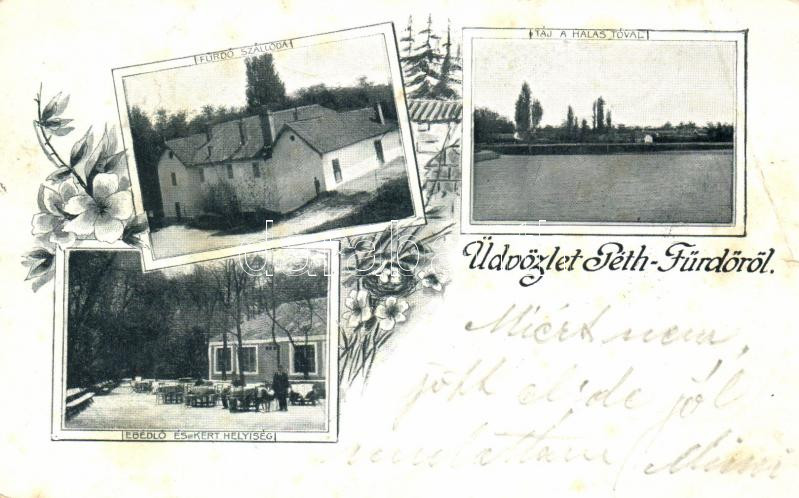 FÜRDŐ SZÁLLODA
TÁJ A HALAS TÓVAL
Üdvözlet Péth-Fürdőről.
EBÉDLŐ ÉS KERT HELYISÉG
Miért nem
jött el, de jól
mulattam Mimi
darabanth